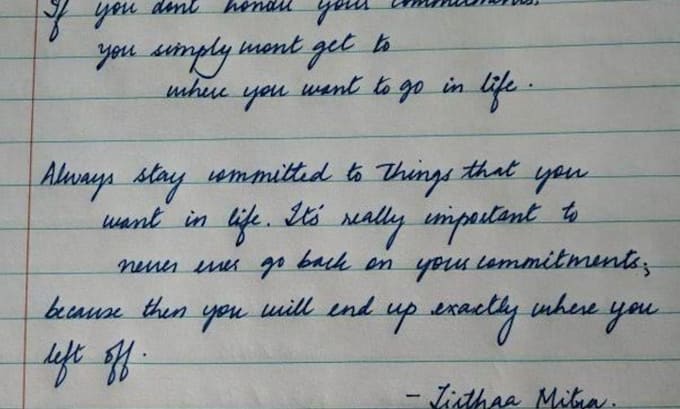 If you dont honour your commitments,
you simply wont get to
where you want to go in life.
Always stay committed to things that you
want in life. It's really important to
never ever go back on your commitments;
because then you will end up exactly where you
left off.
- Tirthaa Mitra.